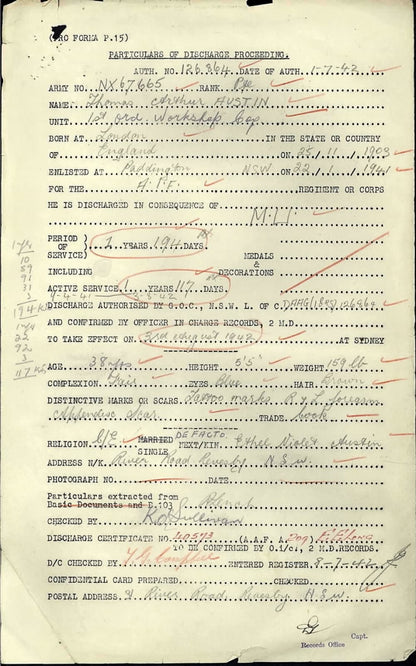 (PRO FORMA P.15)
PARTICULARS OF DISCHARGE PROCEEDING.
AUTH. NO. 126864 DATE OF AUTH. 1-7-42
ARMY NO. NX67665 RANK. Pte
NAME: Thomas Arthur AUSTIN
UNIT. 1st Ord Workshop Coy
BORN AT London IN THE STATE OR COUNTRY
OF England ON 25/11/1903
ENLISTED AT Paddington NSW ON 22/1/1941
FOR THE A.I.F. REGIMENT OR CORPS
HE IS DISCHARGED IN CONSEQUENCE OF
M.U.
PERIOD OF SERVICE) 1 YEARS 194 DAYS. MEDALS
&
INCLUDING DECORATIONS
ACTIVE SERVICE 1 YEARS 117 DAYS.
9-4-41 3-8-42
DISCHARGE AUTHORISED BY G.O.C., N.S.W. L. OF C. DAAG 126964
AND CONFIRMED BY OFFICER IN CHARGE RECORDS, 2 M.D.
TO TAKE EFFECT ON 3rd August 1942 AT SYDNEY
AGE 38 yrs HEIGHT. 5'5" WEIGHT 159 lb
COMPLEXION. Fair EYES Blue HAIR Brown
DISTINCTIVE MARKS OR SCARS. Tattoo marks R & L forearm
Appendix scar TRADE. Cook
RELIGION. C/E MARRIED SINGLE DE FACTO NEXT/KIN. Ethel Violet Austin
ADDRESS N/K. River Road Revesby N.S.W.
PHOTOGRAPH NO. DATE
Particulars extracted from
Basic Documents and D.103
CHECKED BY K O'Sullivan
DISCHARGE CERTIFICATE NO. 40573 (A.A.F. A.
TO BE CONFIRMED BY O.i/c., 2 M.D.RECORDS.
D/C CHECKED BY ENTERED REGISTER. 8-7-42
CONFIDENTIAL CARD PREPARED CHECKED
POSTAL ADDRESS. River Road Revesby N.S.W.
Capt.
Records Office